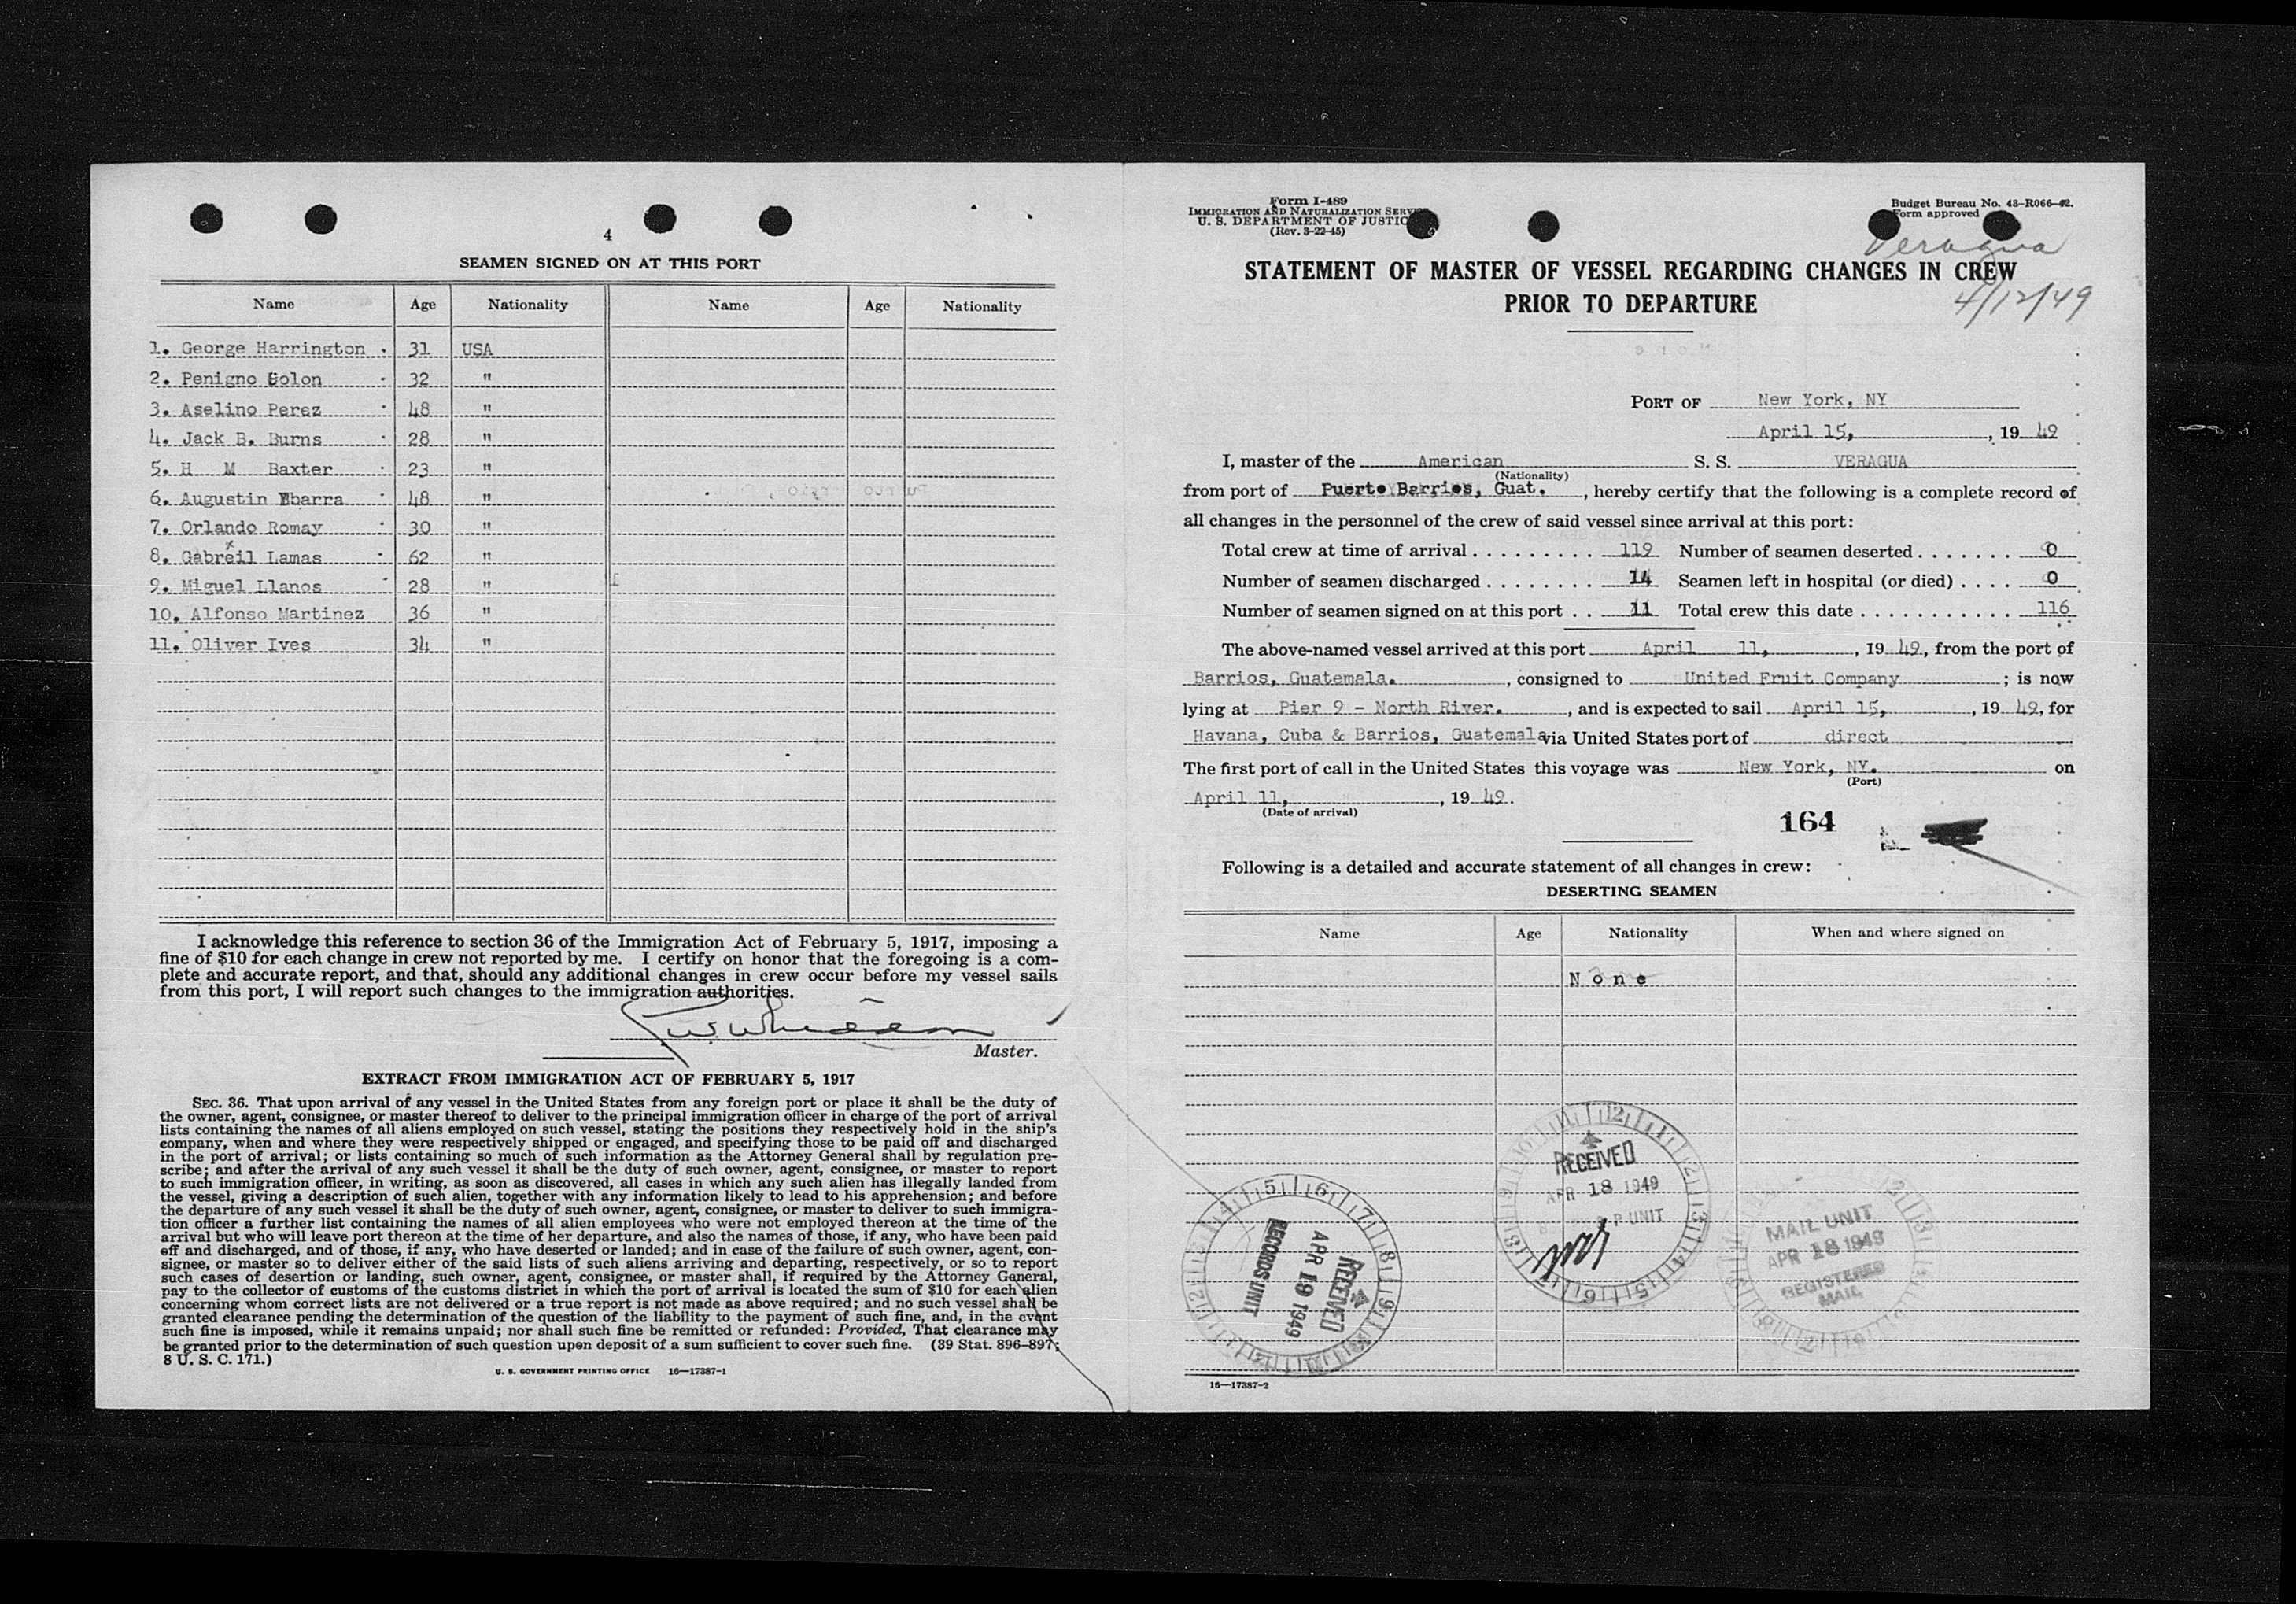 4
SEAMEN SIGNED ON AT THIS PORT
Name Age Nationality Name Age Nationality
1. George Harrington 31 USA
2. Penigno Colon 32 "
3. Aselino Perez 48 "
4. Jack B. Burns 28 "
5. H M Baxter 23 "
6. Augustin Ybarra 48 "
7. Orlando Romay 30 "
8. Gabreil Lamas 62 "
9. Miguel Llanos 28 "
10. Alfonso Martinez 36 "
11. Oliver Ives 34 "
I acknowledge this reference to section 36 of the Immigration Act of February 5, 1917, imposing a
fine of $10 for each change in crew not reported by me. I certify on honor that the foregoing is a com-
plete and accurate report, and that, should any additional changes in crew occur before my vessel sails
from this port, I will report such changes to the immigration authorities.
Master.
EXTRACT FROM IMMIGRATION ACT OF FEBRUARY 5, 1917
SEC. 36. That upon arrival of any vessel in the United States from any foreign port or place it shall be the duty of
the owner, agent, consignee, or master thereof to deliver to the principal immigration officer in charge of the port of arrival
lists containing the names of all aliens employed on such vessel, stating the positions they respectively hold in the ship's
company, when and where they were respectively shipped or engaged, and specifying those to be paid off and discharged
in the port of arrival; or lists containing so much of such information as the Attorney General shall by regulation pre-
scribe; and after the arrival of any such vessel it shall be the duty of such owner, agent, consignee, or master to report
to such immigration officer, in writing, as soon as discovered, all cases in which any such alien has illegally landed from
the vessel, giving a description of such alien, together with any information likely to lead to his apprehension; and before
the departure of any such vessel it shall be the duty of such owner, agent, consignee, or master to deliver to such immigra-
tion officer a further list containing the names of all alien employees who were not employed thereon at the time of the
arrival but who will leave port thereon at the time of her departure, and also the names of those, if any, who have been paid
off and discharged, and of those, if any, who have deserted or landed; and in case of the failure of such owner, agent, con-
signee, or master so to deliver either of the said lists of such aliens arriving and departing, respectively, or so to report
such cases of desertion or landing, such owner, agent, consignee, or master shall, if required by the Attorney General,
pay to the collector of customs of the customs district in which the port of arrival is located the sum of $10 for each alien
concerning whom correct lists are not delivered or a true report is not made as above required; and no such vessel shall be
granted clearance pending the determination of the question of the liability to the payment of such fine, and, in the event
such fine is imposed, while it remains unpaid; nor shall such fine be remitted or refunded: Provided, That clearance may
be granted prior to the determination of such question upon deposit of a sum sufficient to cover such fine. (39 Stat. 896-897;
8 U. S. C. 171.)
U. S. GOVERNMENT PRINTING OFFICE 16—17387-1
Form I-489
IMMIGRATION AND NATURALIZATION
U. S. DEPARTMENT OF JUSTICE
(Rev. 3-22-45)
Budget Bureau No. 43-R066-42.
Form approved
Veragua
STATEMENT OF MASTER OF VESSEL REGARDING CHANGES IN CREW
PRIOR TO DEPARTURE
4/12/49
PORT OF New York, NY
April 15, , 19 49
I, master of the American S. S. VERAGUA
(Nationality)
from port of Puerto Barrios, Guat. , hereby certify that the following is a complete record of
all changes in the personnel of the crew of said vessel since arrival at this port:
Total crew at time of arrival . . . . . . . . . . 119 Number of seamen deserted . . . . . . . 0
Number of seamen discharged . . . . . . . . 14 Seamen left in hospital (or died) . . . . 0
Number of seamen signed on at this port . . 11 Total crew this date . . . . . . . . . . . . 116
The above-named vessel arrived at this port April 11, , 19 49, from the port of
Barrios, Guatemala. , consigned to United Fruit Company ; is now
lying at Pier 9 - North River. , and is expected to sail April 15, , 19 49, for
Havana, Cuba & Barrios, Guatemala via United States port of direct
The first port of call in the United States this voyage was New York, NY. on
(Port)
April 11, , 19 49.
(Date of arrival)
164
Following is a detailed and accurate statement of all changes in crew:
DESERTING SEAMEN
Name Age Nationality When and where signed on
None
RECEIVED
APR 18 1949
P UNIT
RECEIVED
APR 19 1949
RECORDS UNIT
MAIL UNIT
APR 18 1949
REGISTERED
MAIL
16—17387-2